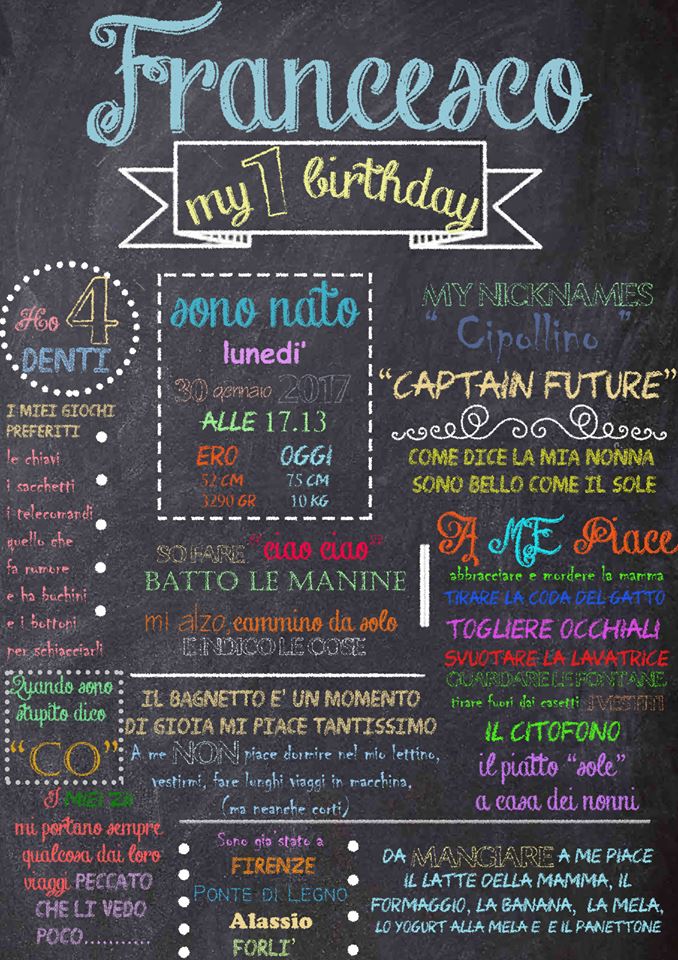 Francesco
my 1 birthday
Ho 4
DENTI
I MIEI GIOCHI
PREFERITI
le chiavi
i sacchetti
i telecomandi
quello che
fa rumore
e ha buchini
e i bottoni
per schiacciarli
Quando sono
stupito dico
"CO"
I MIEI ZA
mi portano sempre
qualcosa dai loro
viaggi PECCATO
CHE LI VEDO
POCO...........
sono nato
lunedi'
30 gennaio 2017
ALLE 17.13
ERO OGGI
52 CM 75 CM
3290 GR 10 KG
SO FARE "ciao ciao"
BATTO LE MANINE
mi alzo, cammino da solo
E INDICO LE COSE
IL BAGNETTO E' UN MOMENTO
DI GIOIA MI PIACE TANTISSIMO
A me NON piace dormire nel mio lettino,
vestirmi, fare lunghi viaggi in macchina,
(ma neanche corti)
MY NICKNAMES
" Cipollino "
"CAPTAIN FUTURE"
COME DICE LA MIA NONNA
SONO BELLO COME IL SOLE
A ME Piace
abbracciare e mordere la mamma
TIRARE LA CODA DEL GATTO
TOGLIERE OCCHIALI
SVUOTARE LA LAVATRICE
GUARDARE LE FONTANE
tirare fuori dai casetti I VESTITI
IL CITOFONO
il piatto "sole"
a casa dei nonni
Sono gia' stato a
FIRENZE
PONTE DI LEGNO
Alassio
FORLI'
DA MANGIARE A ME PIACE
IL LATTE DELLA MAMMA, IL
FORMAGGIO, LA BANANA, LA MELA,
LO YOGURT ALLA MELA E E IL PANETTONE